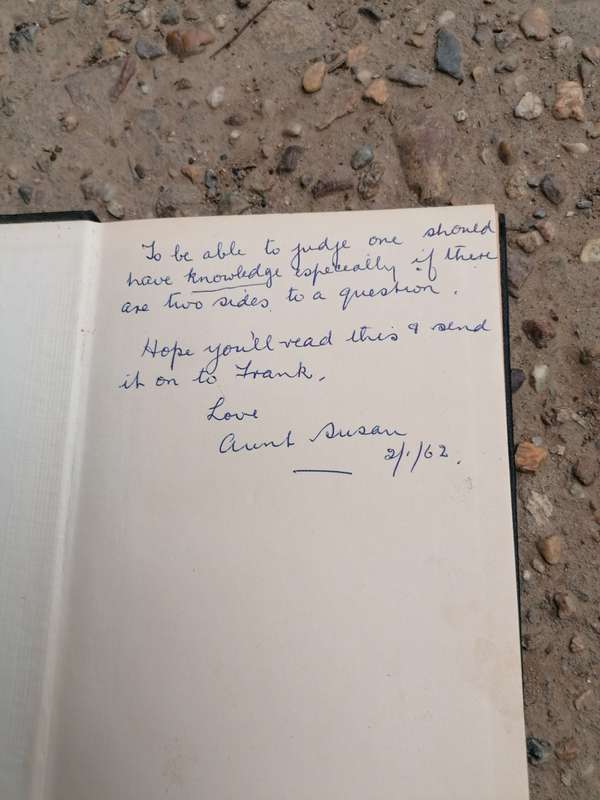 To be able to judge one should
have knowledge especially if there
are two sides to a question.
Hope you'll read this & send
it on to Frank.
Love
Aunt Susan
2/1/62.